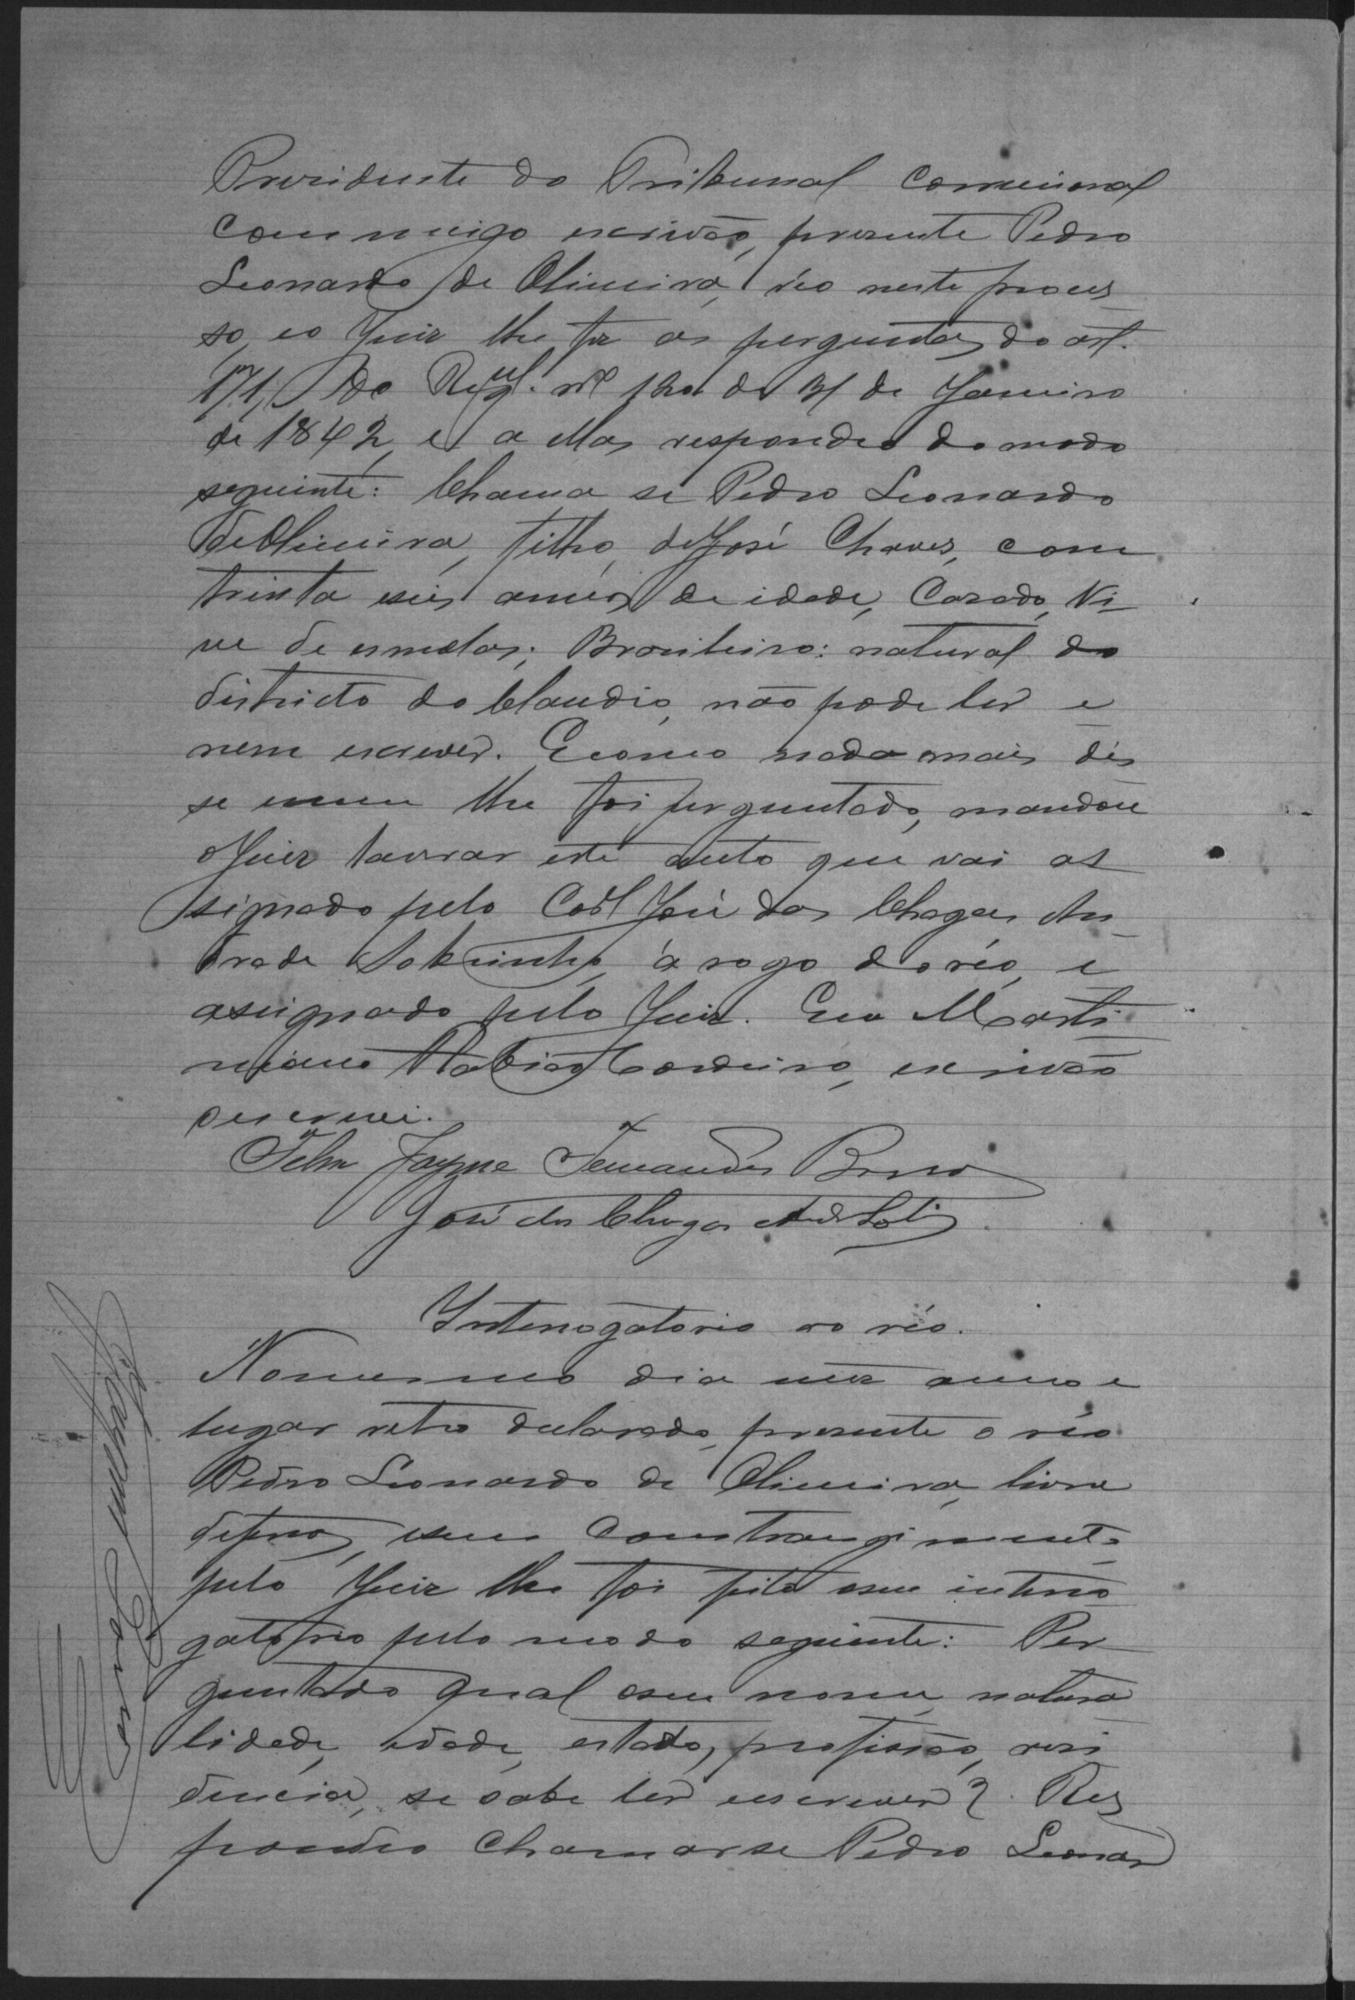 Presidente do Tribunal correcional
commigo escrivão, presente Pedro
Leonardo de Oliveira, réo neste proces
so, e o Juiz lhe fez as perguntas do art.
171, do Regul. nº 120 de 31 de Janeiro
de 1842, e a ellas respondeo do modo
seguinte: Chama se Pedro Leonardo
de Oliveira, filho, de José Chaves, com
trinta e seis annos de idade, Casado, Vi-
ve de esmolas; Brasileiro: natural do
districto do Claudio, não pode ler e
nem escrever. E como nada mais dis
se e nem lhe foi perguntado, mandou
o Juiz lavrar este auto que vai as
signado pelo José das Chagas An-
drade Sobrinho, á rogo do réo, e
assignado pelo Juiz. Eu Marti
niano Cordeiro, escrivão
o escrevi.
Jayme Fernandes
José das Chagas Andr Sobr
Interrogatorio ao réo.
No mesmo dia mez anno e
lugar retro declarado, presente o réo
Pedro Leonardo de Oliveira, livre
de ferros, e sem constrangimento
pelo Juiz lhe foi feito o seu interro
gatorio pelo modo seguinte: Per
guntado qual o seu nome, natura
lidade, idade, estado, profissão, resi
dencia, se sabe ler e escrever? Res
pondeo chamar se Pedro Leonar